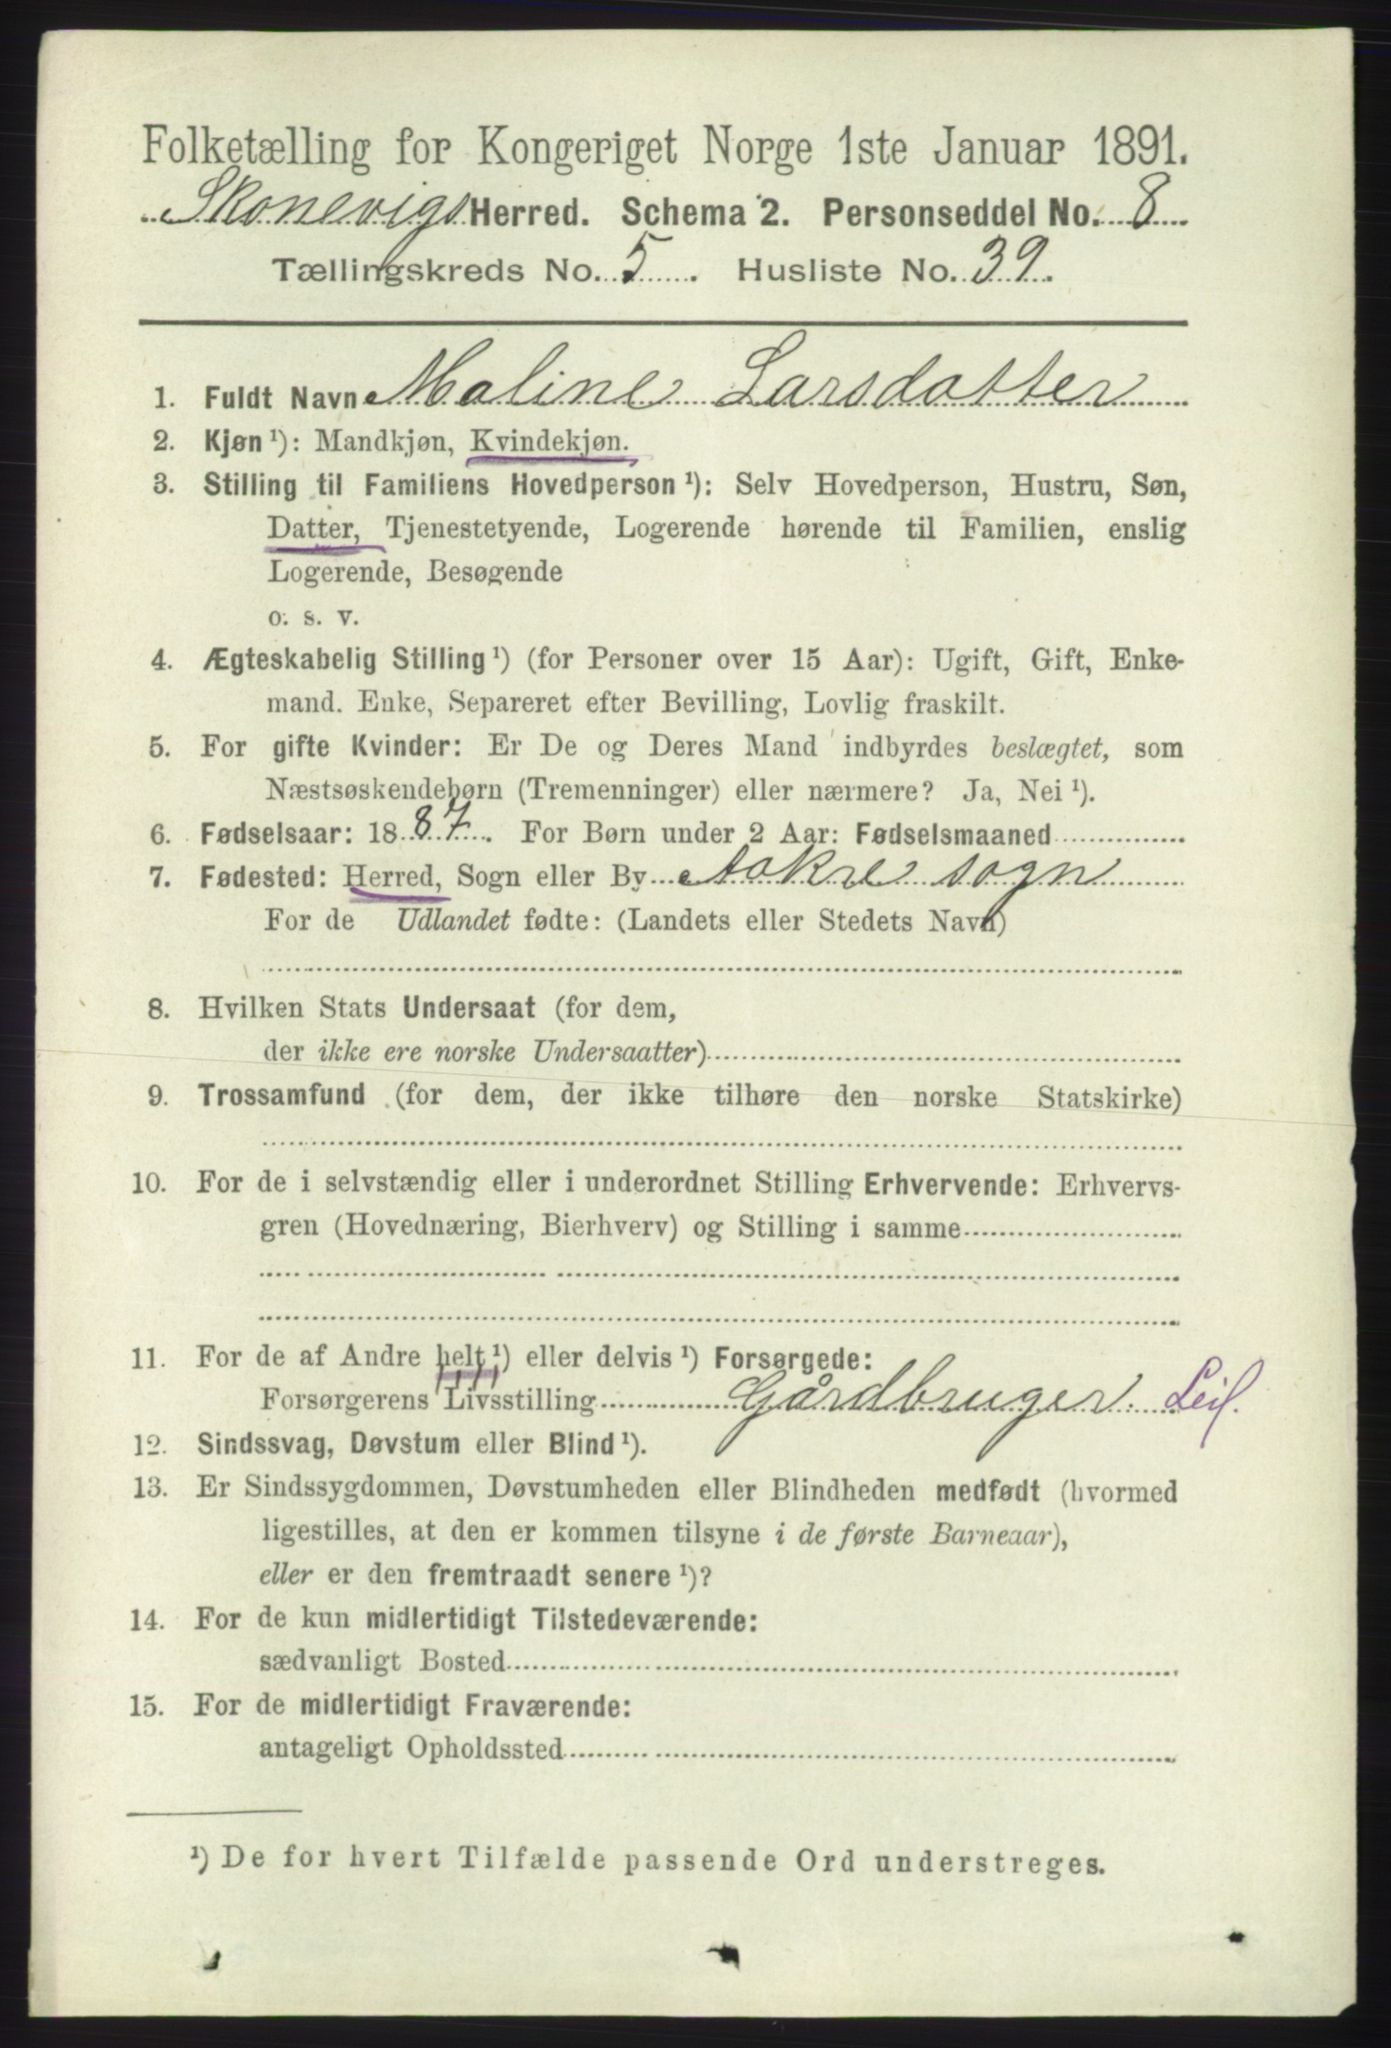 Folketælling for Kongeriget Norge 1ste Januar 1891.
Skonevigs Herred. Schema 2. Personseddel No. 8
Tællingskreds No. 5. Husliste No. 39.
1. Fuldt Navn Maline Larsdatter
2. Kjøn ¹): Mandkjøn, Kvindekjøn.
3. Stilling til Familiens Hovedperson ¹): Selv Hovedperson, Hustru, Søn,
Datter, Tjenestetyende, Logerende hørende til Familien, enslig
Logerende, Besøgende
o. s. v.
4. Ægteskabelig Stilling ¹) (for Personer over 15 Aar): Ugift, Gift, Enke-
mand. Enke, Separeret efter Bevilling, Lovlig fraskilt.
5. For gifte Kvinder: Er De og Deres Mand indbyrdes beslægtet, som
Næstsøskendebørn (Tremenninger) eller nærmere? Ja, Nei ¹).
6. Fødselsaar: 1887. For Børn under 2 Aar: Fødselsmaaned
7. Fødested: Herred, Sogn eller By Aakre sogn
For de Udlandet fødte: (Landets eller Stedets Navn)
8. Hvilken Stats Undersaat (for dem,
der ikke ere norske Undersaatter)
9. Trossamfund (for dem, der ikke tilhøre den norske Statskirke)
10. For de i selvstændig eller i underordnet Stilling Erhvervende: Erhvervs-
gren (Hovednæring, Bierhverv) og Stilling i samme
11. For de af Andre helt ¹) eller delvis ¹) Forsørgede:
Forsørgerens Livsstilling Gårdbruger. Leil.
12. Sindssvag, Døvstum eller Blind ¹).
13. Er Sindssygdommen, Døvstumheden eller Blindheden medfødt (hvormed
ligestilles, at den er kommen tilsyne i de første Barneaar),
eller er den fremtraadt senere ¹)?
14. For de kun midlertidigt Tilstedeværende:
sædvanligt Bosted
15. For de midlertidigt Fraværende:
antageligt Opholdssted
¹) De for hvert Tilfælde passende Ord understreges.